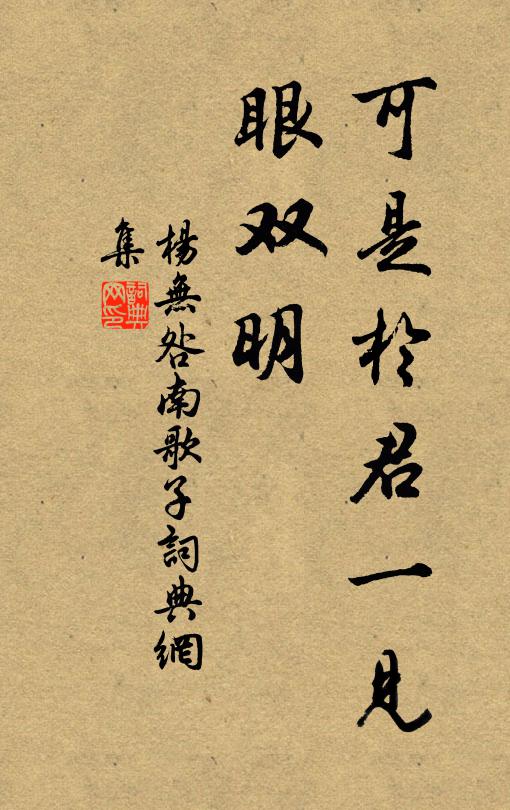 可是於君一见
眼双明
楊無咎南歌子詞典網
集
詞典网印